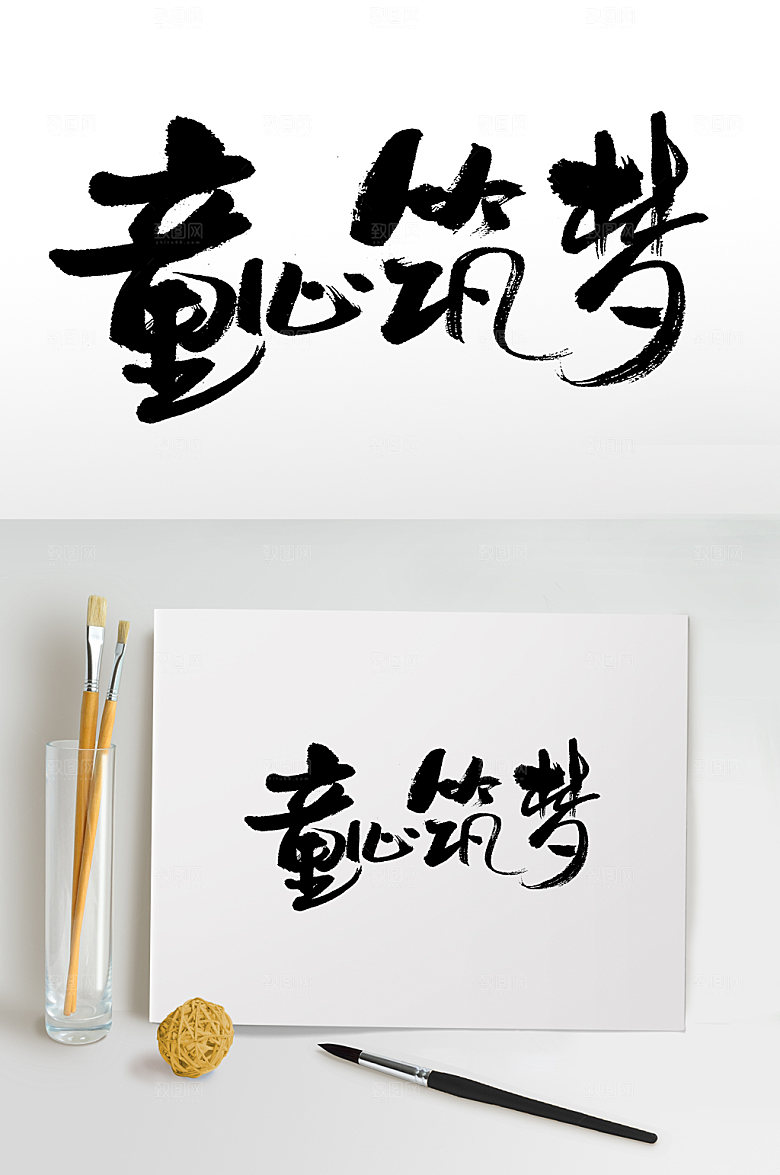 童心筑梦
童心筑梦